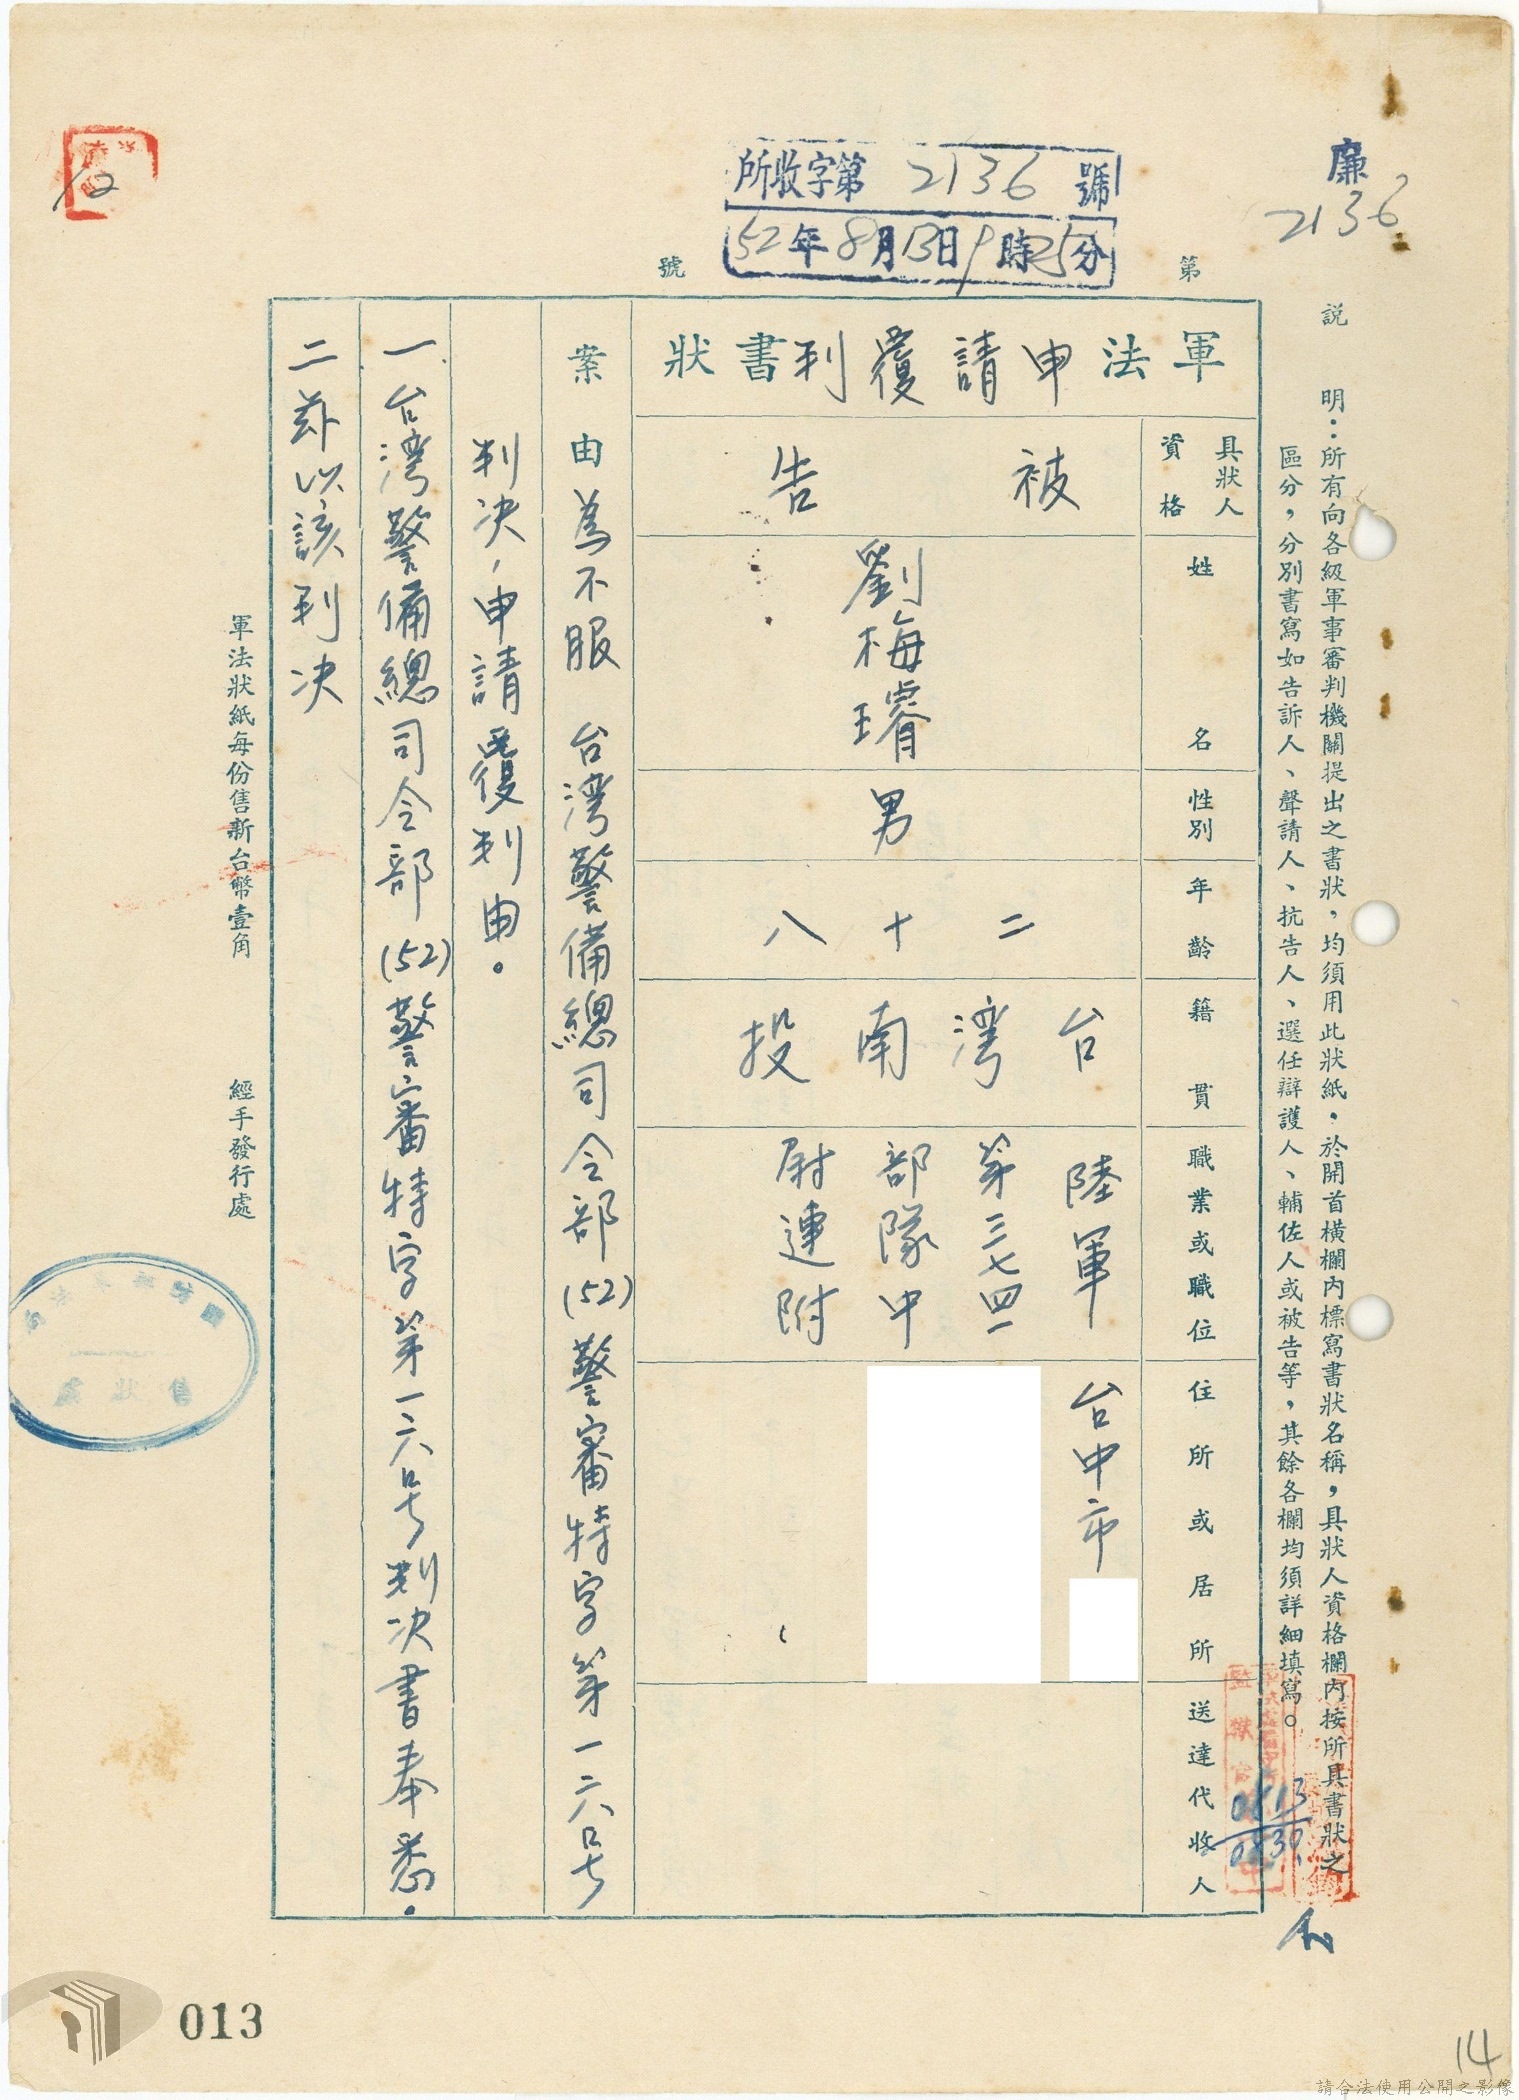 廉
2136
所收字第 2136 號
52年8月13日9時25分
第 號
說明：所有向各級軍事審判機關提出之書狀，均須用此狀紙。於開首橫欄內標寫書狀名稱，具狀人資格欄內按所具書狀之
區分，分別書寫如告訴人、聲請人、抗告人、選任辯護人、輔佐人或被告等，其餘各欄均須詳細填寫。
軍法申請覆判書狀
具狀人
資格
姓名
性別
年齡
籍貫
職業或職位
住所或居所
送達代收人
被告
劉梅璿
男
二十八
台灣南投
陸軍
第三七四一
部隊中
尉連附
台中市
案由 為不服 台灣警備總司令部(52)警審特字第一六号
判決，申請覆判由。
一 台灣警備總司令部(52)警審特字第一六号判決書奉悉。
二 茲以該判決
軍法狀紙每份售新台幣壹角
經手發行處
監獄官
0813
0830
12
013
14
請合法使用公開之影像